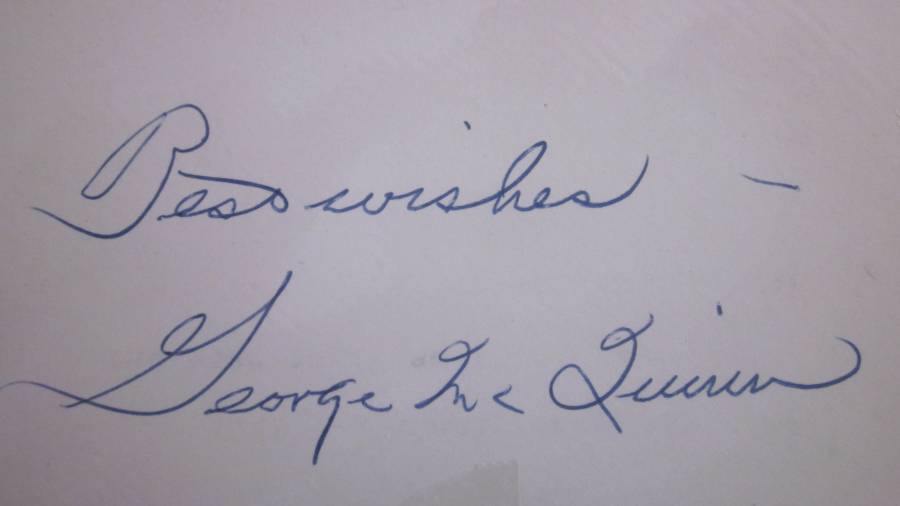 Best wishes -
George Mc Quinn